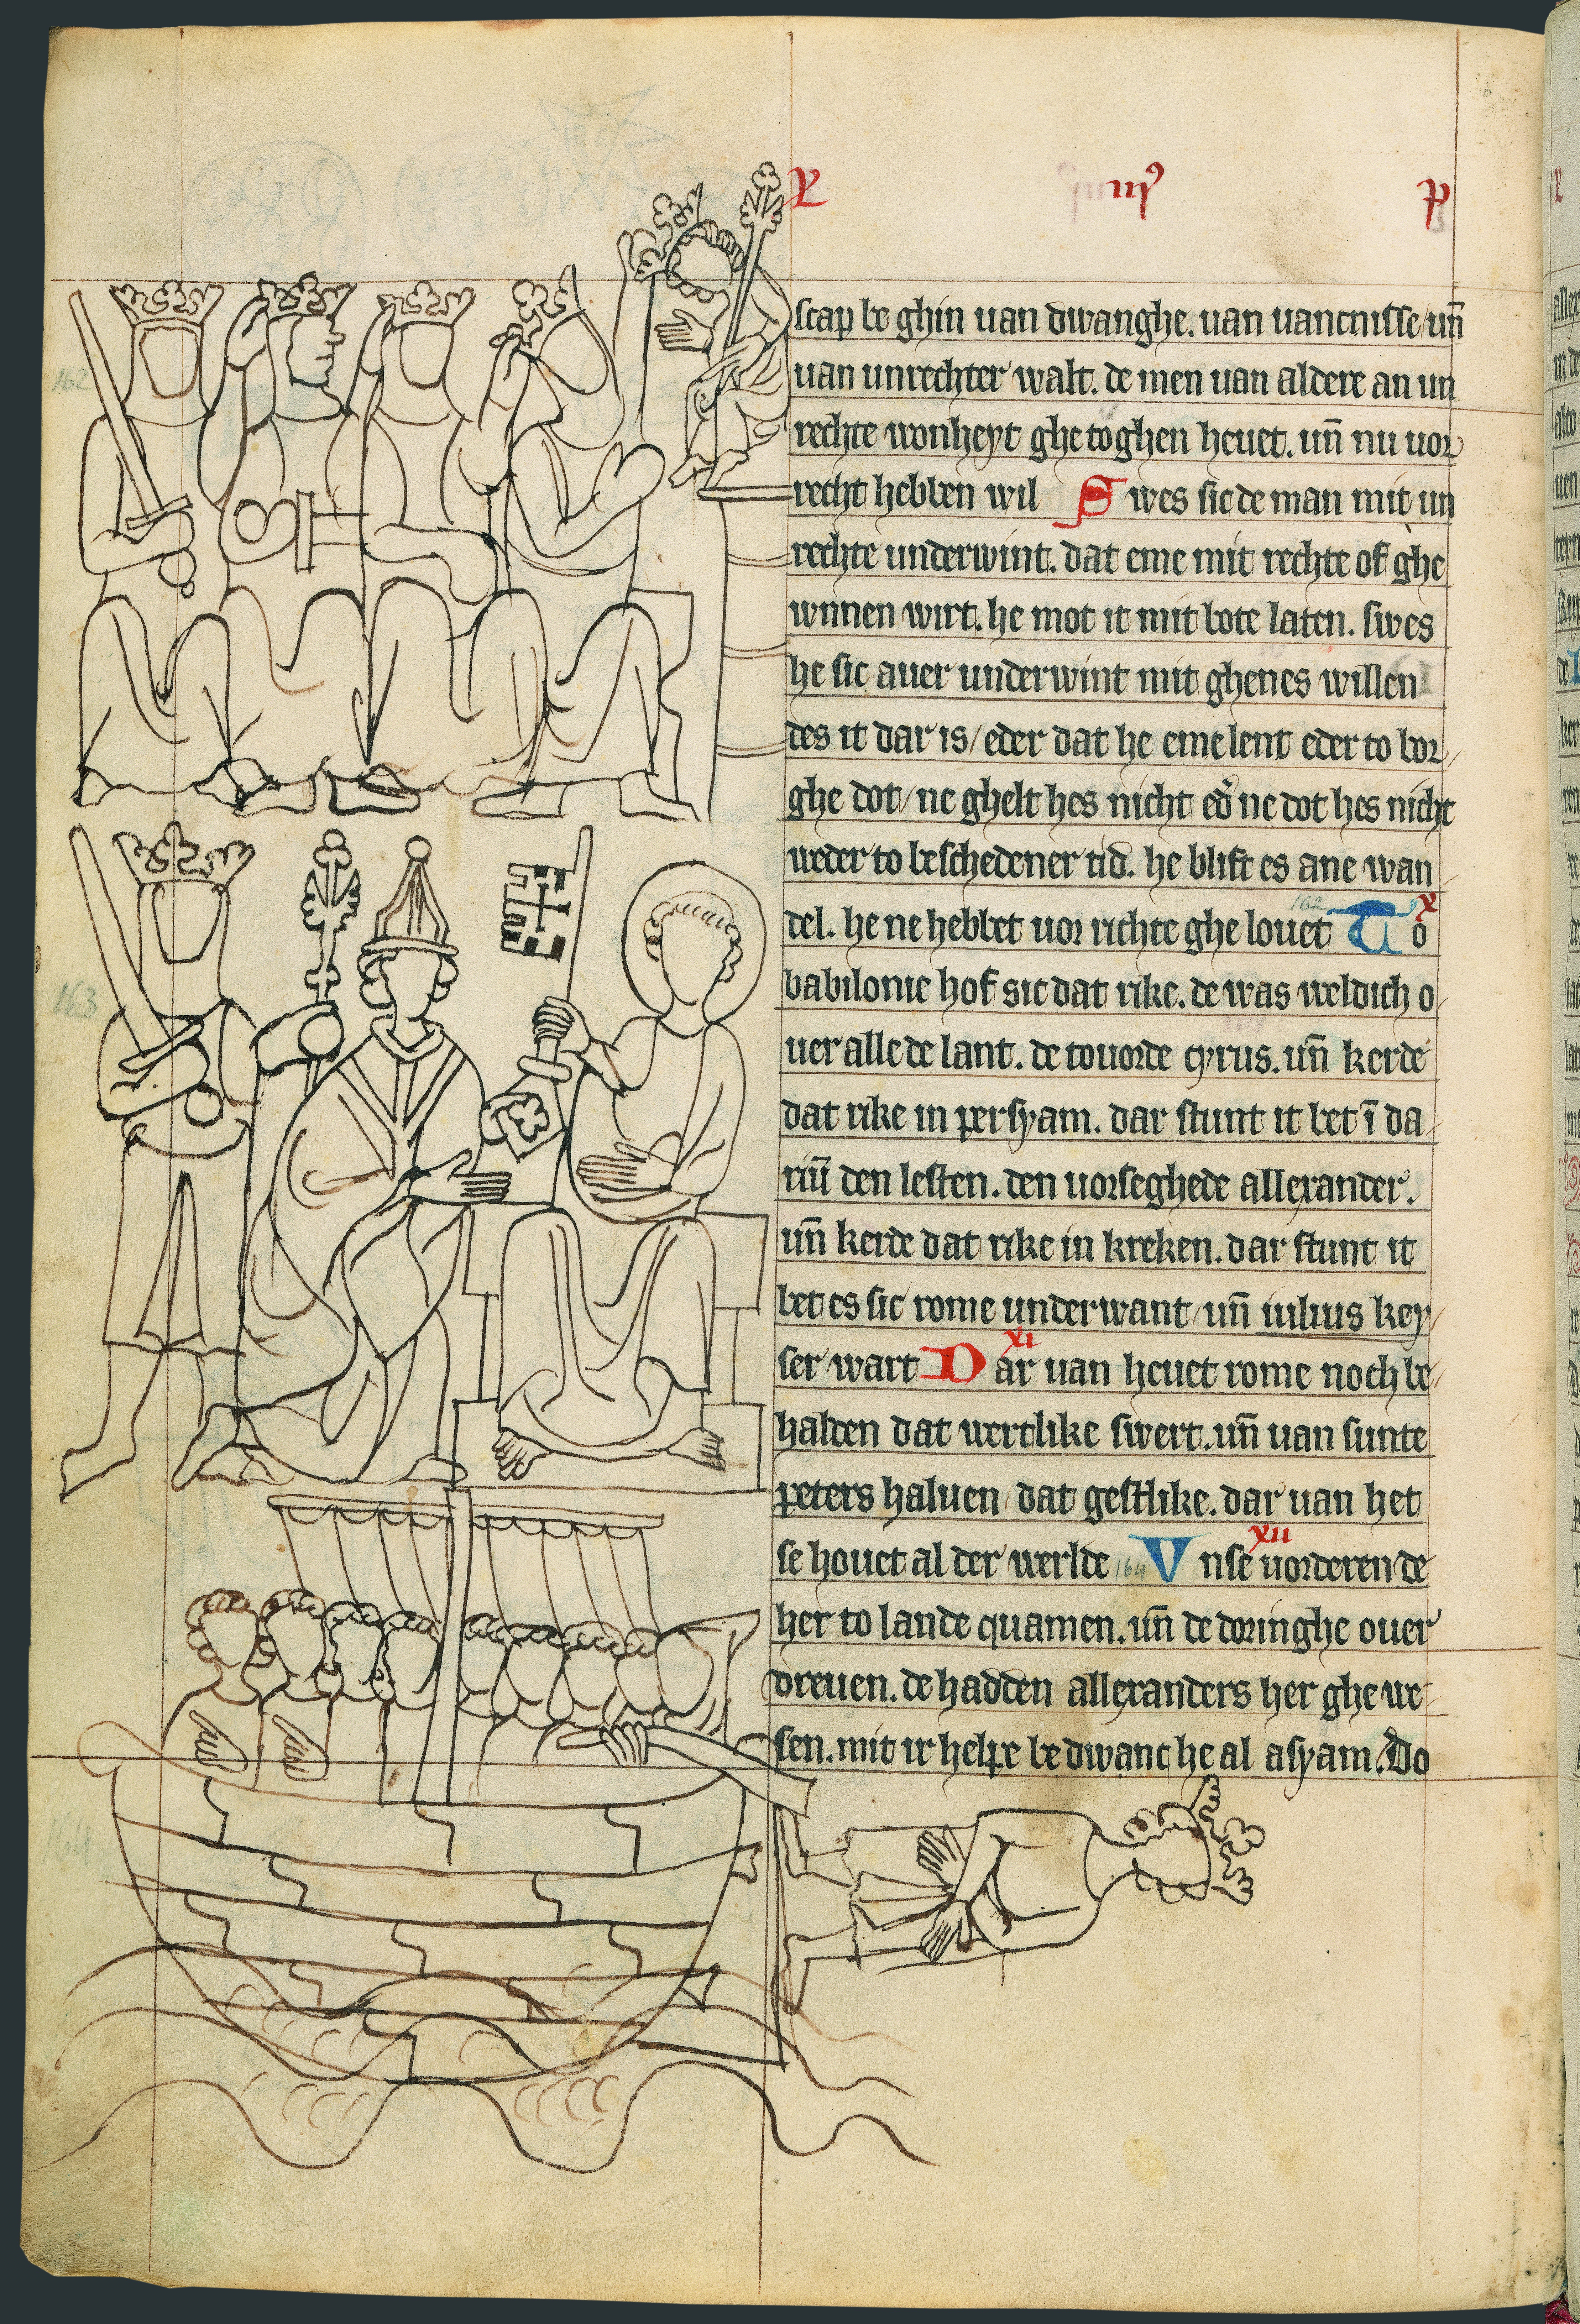 L iij⁹ p
scap be ghin uan dwanghe. uan uancnisse/ uñ
uan unrechter walt. de men uan aldere an un
rechte wonheyt ghetoghen heuet. uñ nu uor
recht hebben wil S wes sic de man mit un
rechte underwint. dat eme mit rechte of ghe
wnnen wirt. he mot it mit bote laten. swes
he sic auer underwint mit ghenes willen
des it dar is/ eder dat he eme lent eder to bor/
ghe dot/ ne ghelt hes nicht ed' ne dot hes nicht
weder to beschedener tid. he blift es ane wan/
del. he ne hebbet uor richte ghe louet 162 T o x
babilonie hof sic dat rike. de was weldich o/
uer alle de lant. de touorde cyrus. uñ kerde
dat rike in persyam. dar stunt it bet ī da/
riū den lesten. den uorseghede allexander.
uñ kerde dat rike in kreken. dar stunt it
bet es sic rome underwant/ uñ iulius key/
ser wart D ar uan heuet rome noch be/ xi
halden dat wertlike swert. uñ uan sunte
peters haluen/ dat gestlike. dar uan het
se houet al der werlde 164 V nse uorderen de xii
her to lande quamen. uñ de doringhe ouer
dreuen. de hadden allexanders her ghe we/
sen. mit ir helpe bedwanc he al asyam. Do
162
163
164